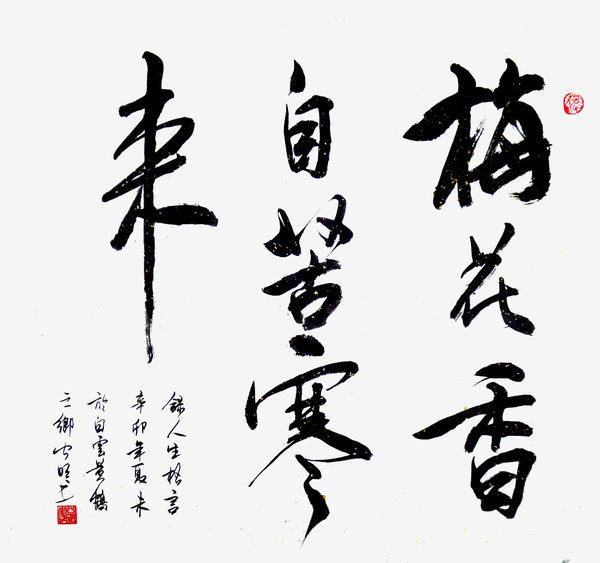 梅花香
自苦寒
来
錄人生格言
辛卯年夏末
於白雲黄鶴
之鄉